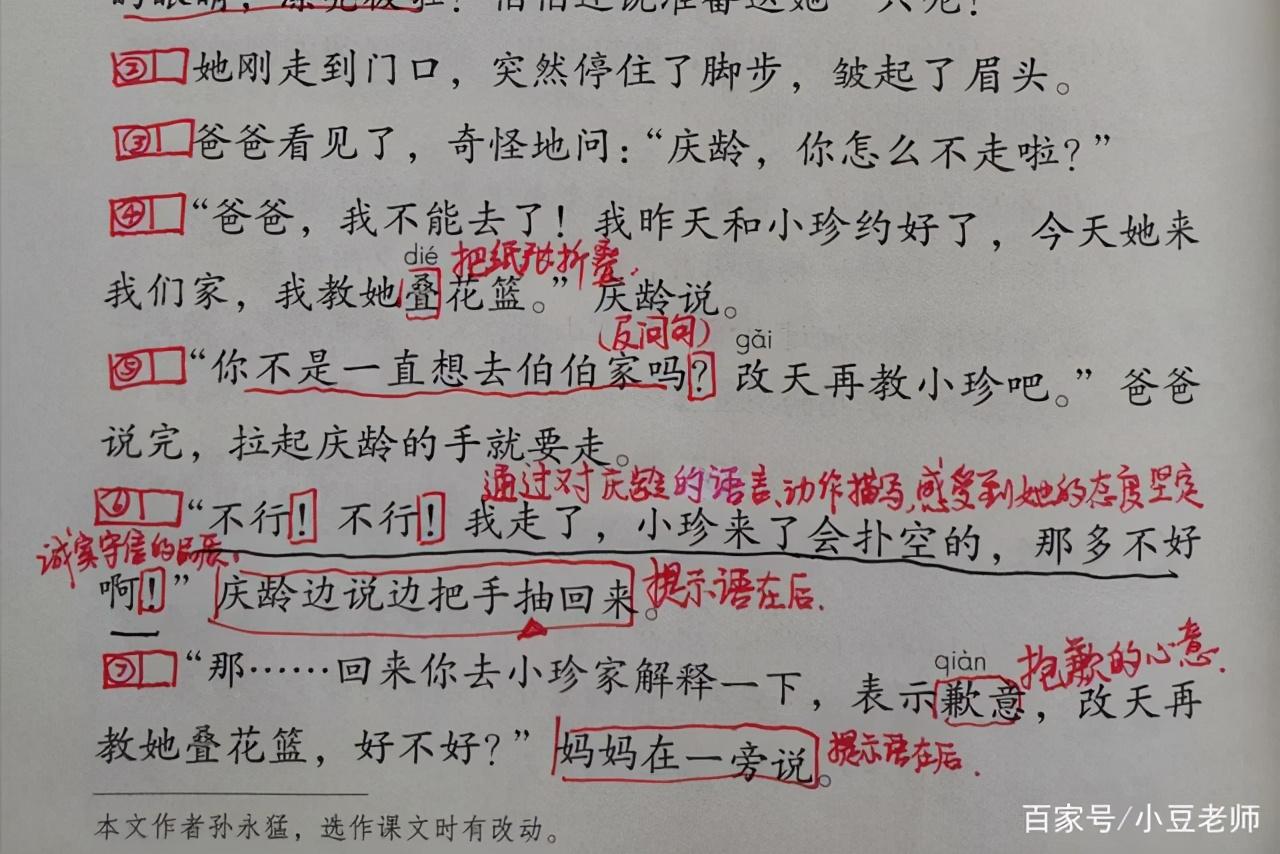 的眼睛，漂亮极啦！伯伯还说准备送她一只呢！
② 她刚走到门口，突然停住了脚步，皱起了眉头。
③ 爸爸看见了，奇怪地问：“庆龄，你怎么不走啦？”
④ “爸爸，我不能去了！我昨天和小珍约好了，今天她来
dié 把纸张折叠.
我们家，我教她叠花篮。”庆龄说。
(反问句) gǎi
⑤ “你不是一直想去伯伯家吗？改天再教小珍吧。”爸爸
说完，拉起庆龄的手就要走。
通过对庆龄的语言、动作描写,感受到她的态度坚定
⑥ “不行！不行！我走了，小珍来了会扑空的，那多不好
诚实守信的品质.
啊！”庆龄边说边把手抽回来。提示语在后.
qiàn 抱歉的心意.
⑦ “那……回来你去小珍家解释一下，表示歉意，改天再
教她叠花篮，好不好？”妈妈在一旁说。提示语在后.
本文作者孙永猛，选作课文时有改动。
百家号/小豆老师